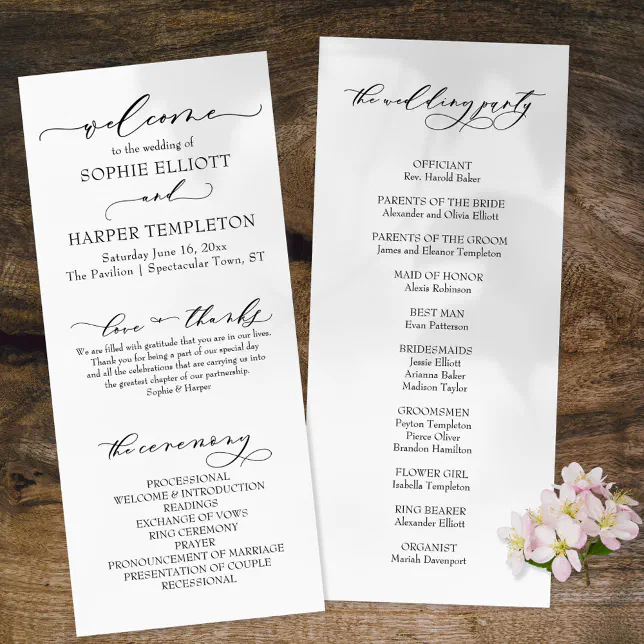 welcome
to the wedding of
SOPHIE ELLIOTT
and
HARPER TEMPLETON
Saturday June 16, 20xx
The Pavilion | Spectacular Town, ST
love + thanks
We are filled with gratitude that you are in our lives.
Thank you for being a part of our special day
and all the celebrations that are carrying us into
the greatest chapter of our partnership.
Sophie & Harper
the ceremony
PROCESSIONAL
WELCOME & INTRODUCTION
READINGS
EXCHANGE OF VOWS
RING CEREMONY
PRAYER
PRONOUNCEMENT OF MARRIAGE
PRESENTATION OF COUPLE
RECESSIONAL
the wedding party
OFFICIANT
Rev. Harold Baker
PARENTS OF THE BRIDE
Alexander and Olivia Elliott
PARENTS OF THE GROOM
James and Eleanor Templeton
MAID OF HONOR
Alexis Robinson
BEST MAN
Evan Patterson
BRIDESMAIDS
Jessie Elliott
Arianna Baker
Madison Taylor
GROOMSMEN
Peyton Templeton
Pierce Oliver
Brandon Hamilton
FLOWER GIRL
Isabella Templeton
RING BEARER
Alexander Elliott
ORGANIST
Mariah Davenport